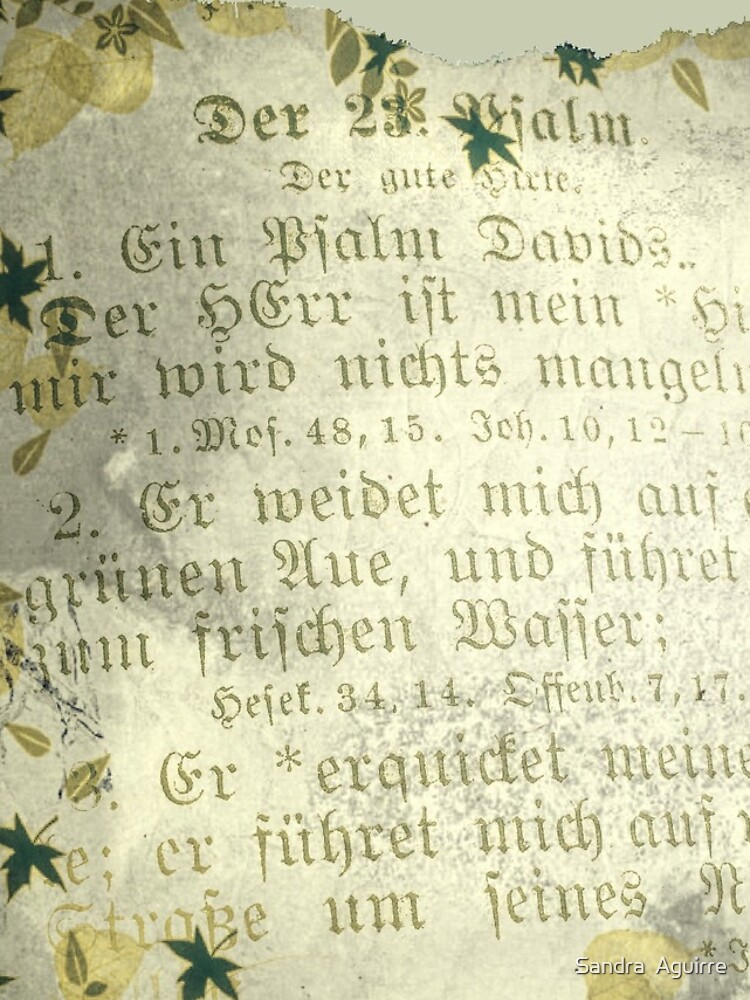 Der 23. Psalm.
Der gute Hirte.
1. Ein Psalm Davids.
Der HErr ist mein *Hi
mir wird nichts mangeln
* 1. Mos. 48, 15. Joh. 10, 12-1
2. Er weidet mich auf
grünen Aue, und führet
zum frischen Wasser;
Hesek. 34, 14. Offenb. 7, 17.
3. Er *erquicket meine
le; er führet mich auf
Straße um seines N
Sandra Aguirre